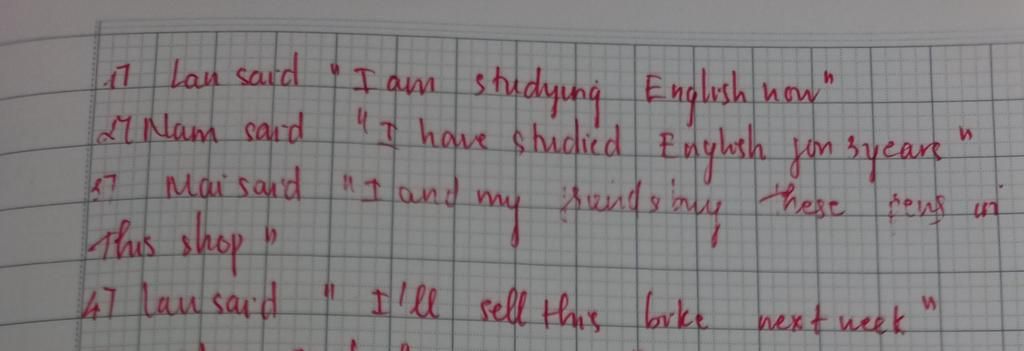 1) Lan said "I am studying English now"
2) Nam said "I have studied English for 3 years"
3) Mai said "I and my friends buy these pens in
this shop"
4) Lan said "I'll sell this bike next week"